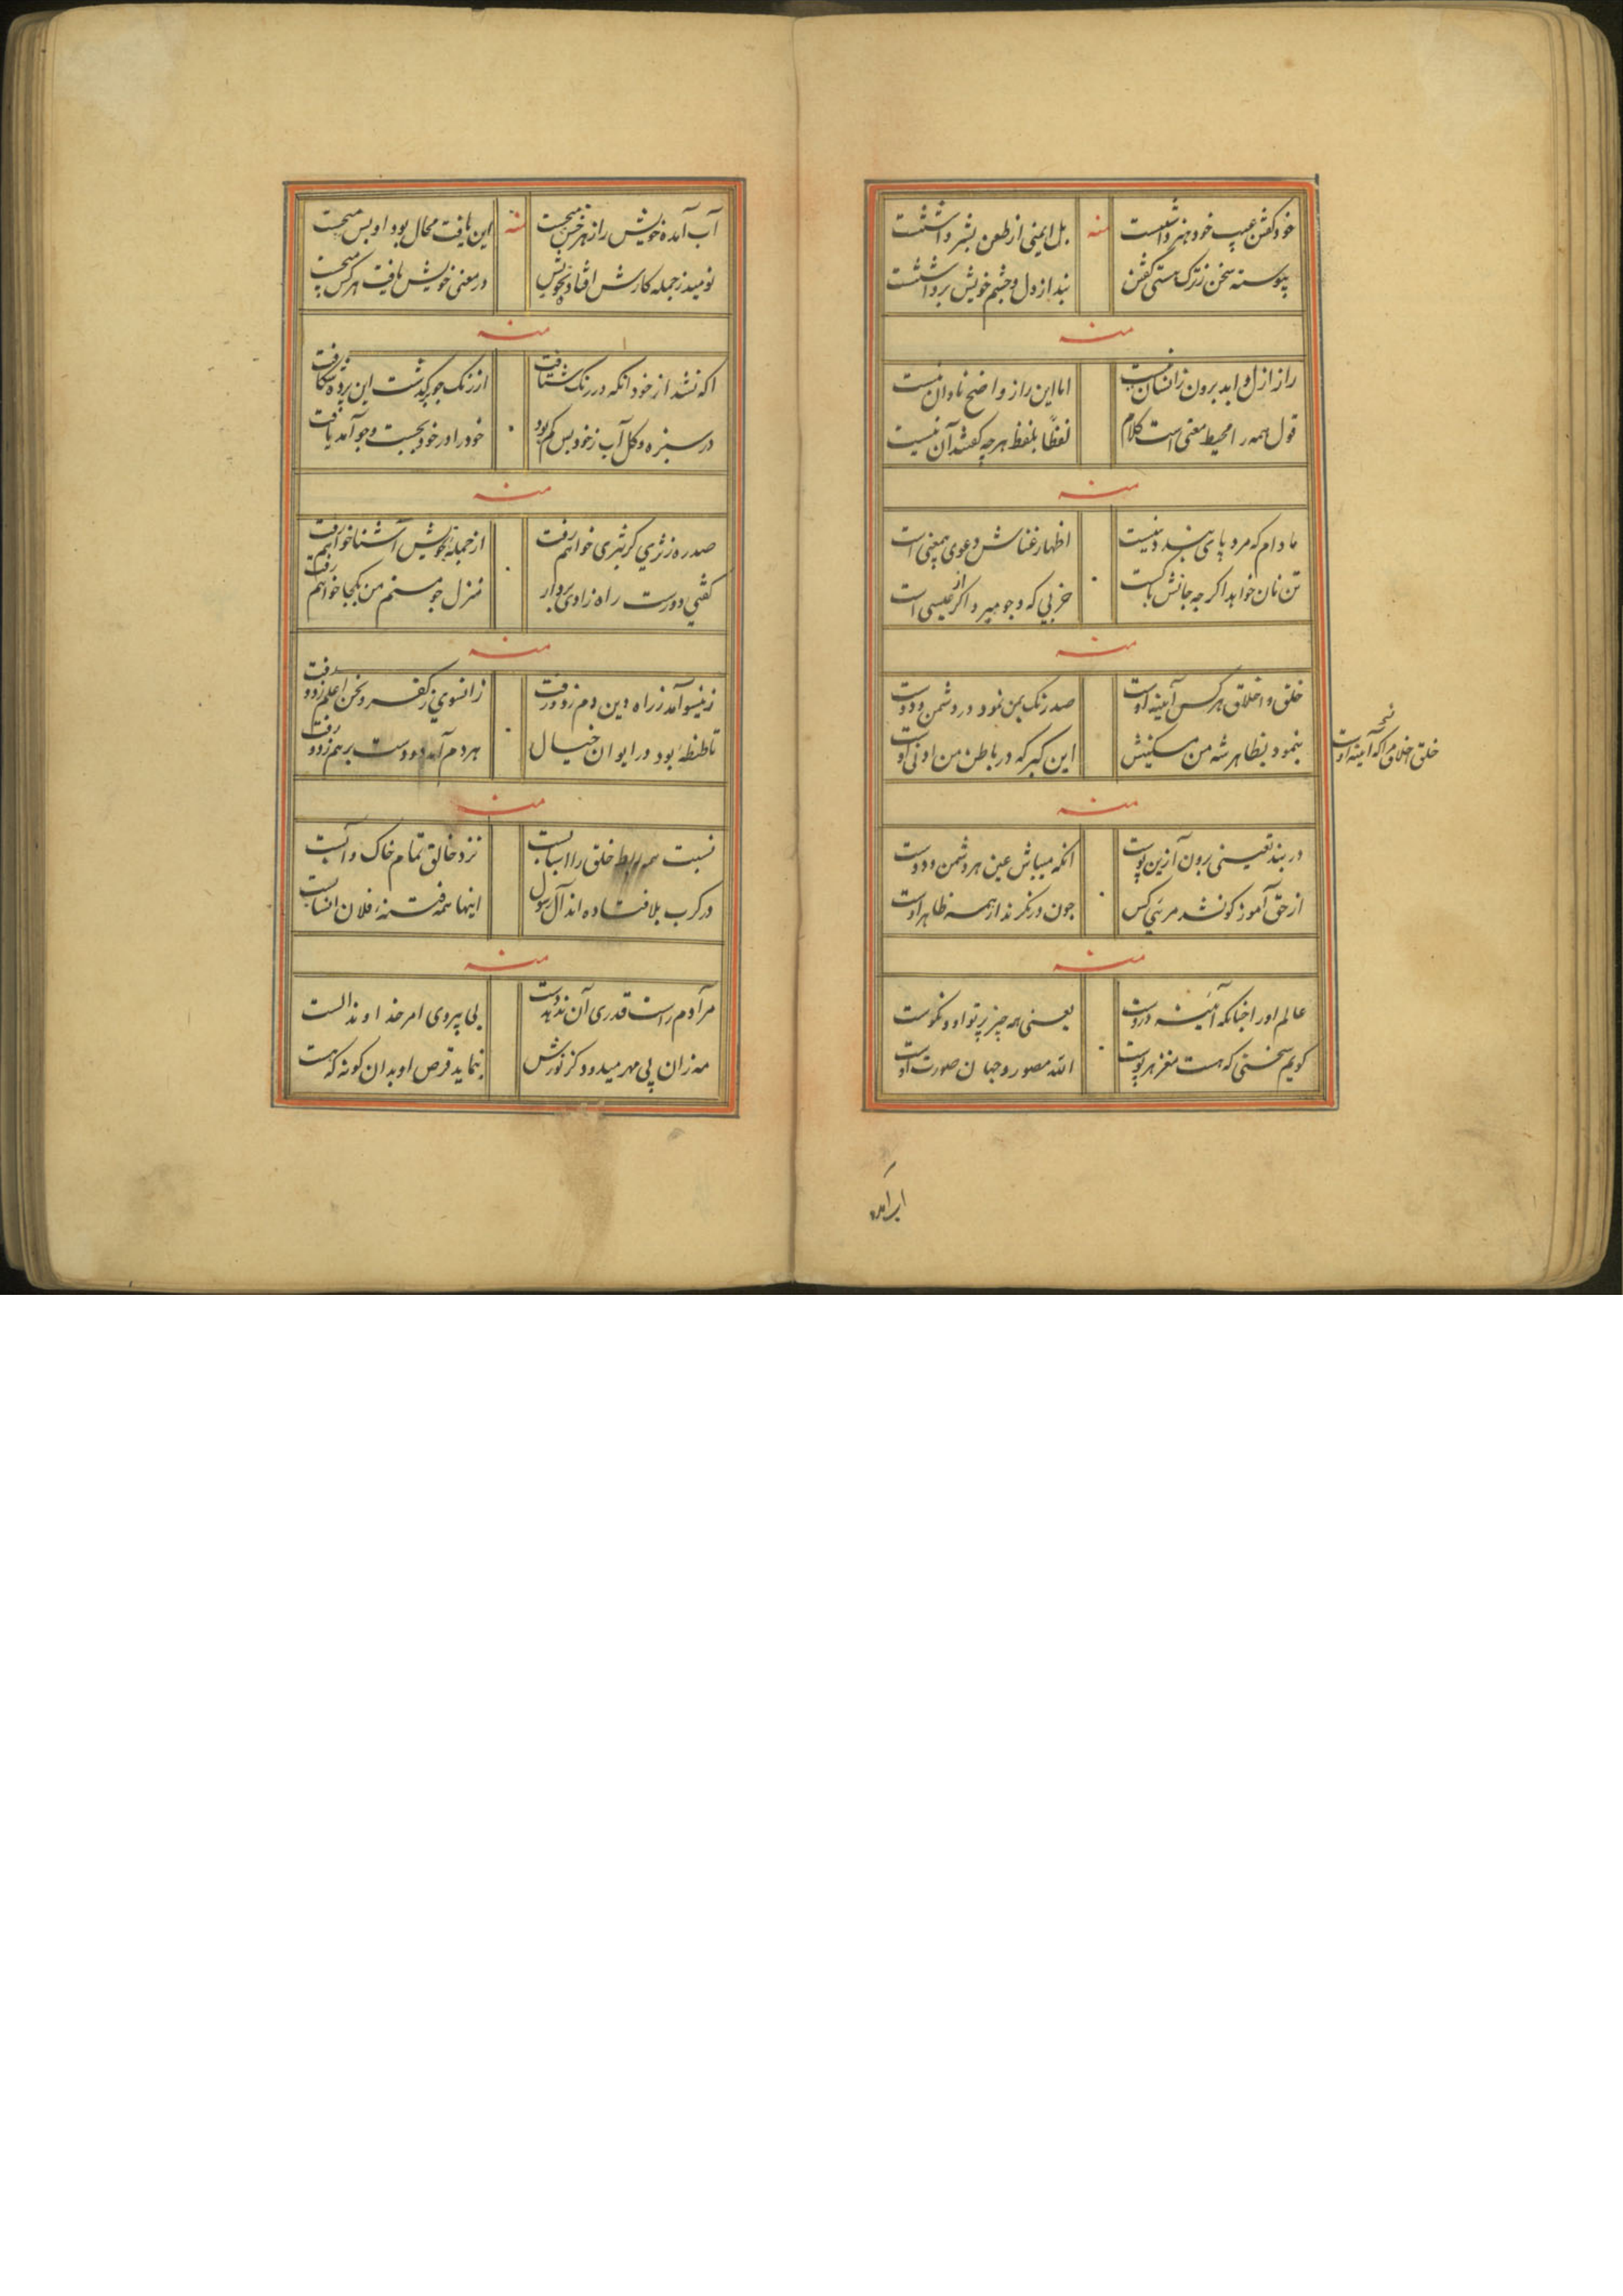 خود گفتن عیب خود هنر داشتست
بل ایمنی از طعن بشر داشتست
منه
پیوسته سخن ز ترک هستی گفتن
بند از دل و چشم خویش برداشتست
منه
راز ازل و ابد برون زانسان نیست
اما این راز واضح نادان نیست
قول همه را محیط معنی است کلام
لفظا بلفظ هرچه گفتند آن نیست
منه
مادام که مرد پای بند دنییست
اظهار غناش دعوی بیمعنی است
تن نان خواهد اکرچه جانش
خر بی که و جو میرد اکر از عیسی است
منه
خلق و اخلاق هرکس آیینه اوست
صد رنک بمن نمود در دشمن و دوست
بنمود بظاهر شه من مسکینش
این کبر که در باطن من
خلق و اخلاق مرا که آیینه اوست
منه
در بند تعینی برون آ زین پوست
انکه میباش عین هر دشمن و دوست
از حق آموز کو نشد مرئی کس
چون در نکرند از همه ظاهر اوست
منه
عالم او را چنانکه آیینه دروست
یعنی همه چیز پرتو او و نکوست
کویم سخنی که هست مغز هر پوست
الله مصور و جهان صورت اوست
آب آمده خویش را ز هر خس میجست
این یافت محال بود او بس میجست
منه
نومید ز جمله کارش افتاد بخویش
در معنی خویش یافت هرکس میجست
منه
اکه نشد از خود انکه در رنک شتافت
از رنک چو بگذشت این پرده شکافت
در سبزه و کل آب ز خود بس کم بود
خود را در خود بجست و جو آمد یافت
منه
صد ره ز ثری کر بثری خواهم رفت
از جمله بخویش آشنا خواهم رفت
کفتی دورست راه زادی بردار
منزل چو منم من بکجا خواهم رفت
منه
زینسو آمد ز راه دین دم زد و رفت
زانسوی ز کفر و نحن اعلم زد و رفت
تا طنطنه بود در ایوان خیال
هر دم آمد دو دست بر هم زد و رفت
منه
نسبت همه ربط خلق را اسبابست
نزد خالق تمام خاک و آبست
در کرب بلا فتاده اند آل رسول
اینها همه فتنه فلان انسابست
منه
مر آدم راست قدری آن ندهد دست
بی پیروی امر خداوند الست
مه زان پی مهر میدود کز نورش
بنماید قرص او بدان کونه که هست